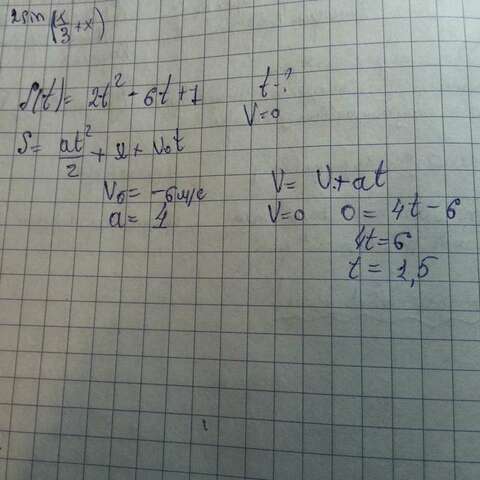 2sin(x/3+x)
S(t)= 2t² - 6t + 1
t-?
V=0
S= at²/2 + x + v₀t
V₀= -6м/с
a= 4
V= V₀+at
V=0 0= 4t-6
4t=6
t= 1,5